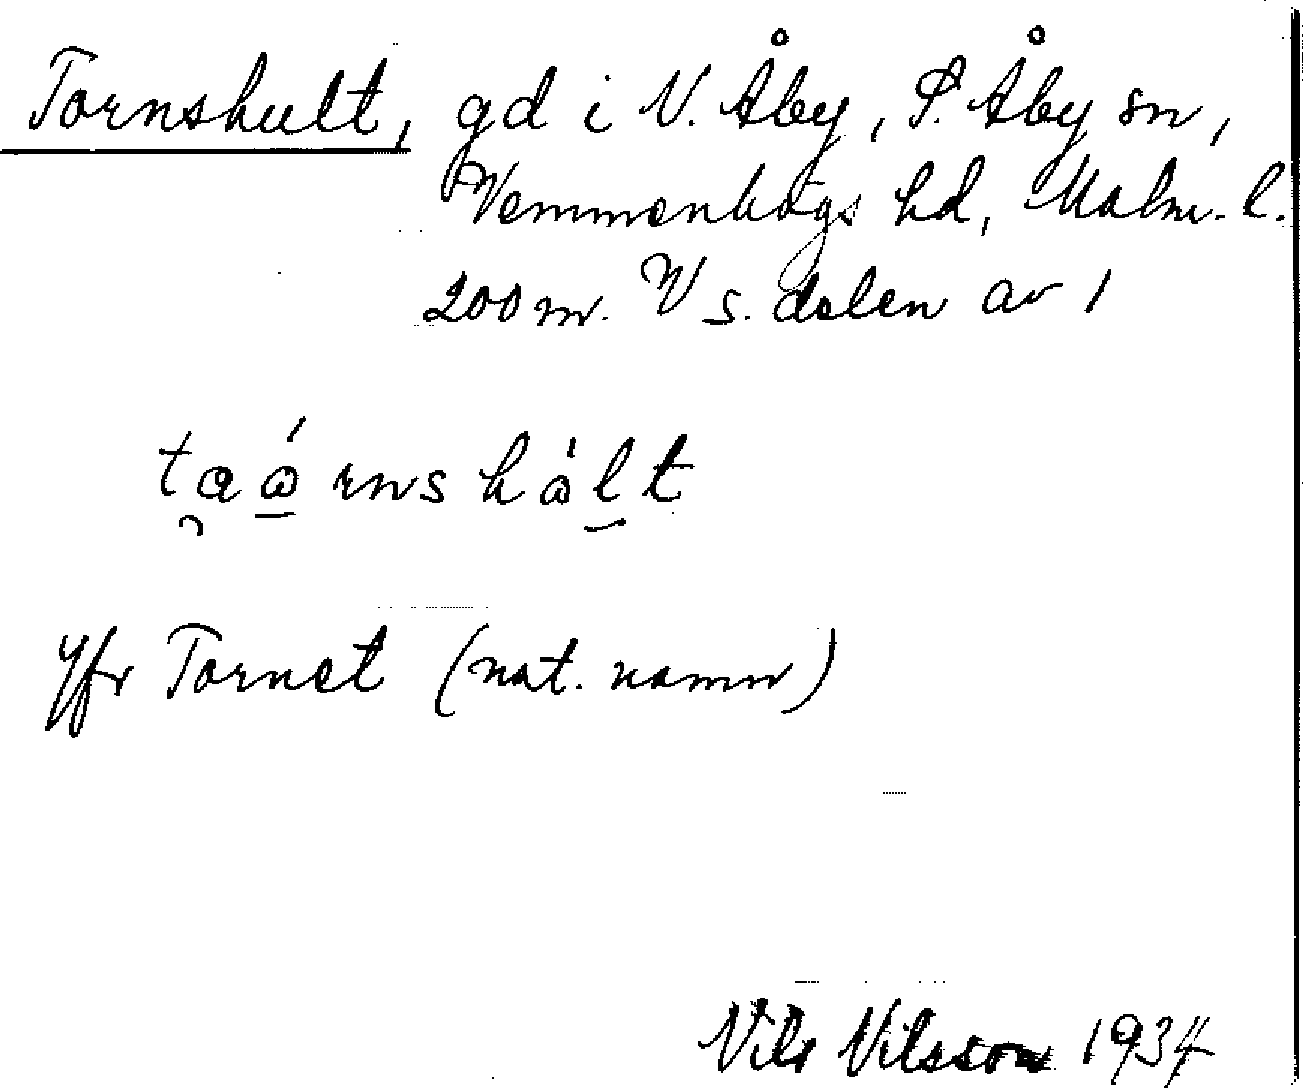 Tornshult, gd i V. Åby, S. Åby sn,
Vemmenhögs hd, Malm. l.
200 m. V s. delen av 1
taǻrnshå̀lt
Jfr Tornet (nat. namn)
Nils Nilsson 1934